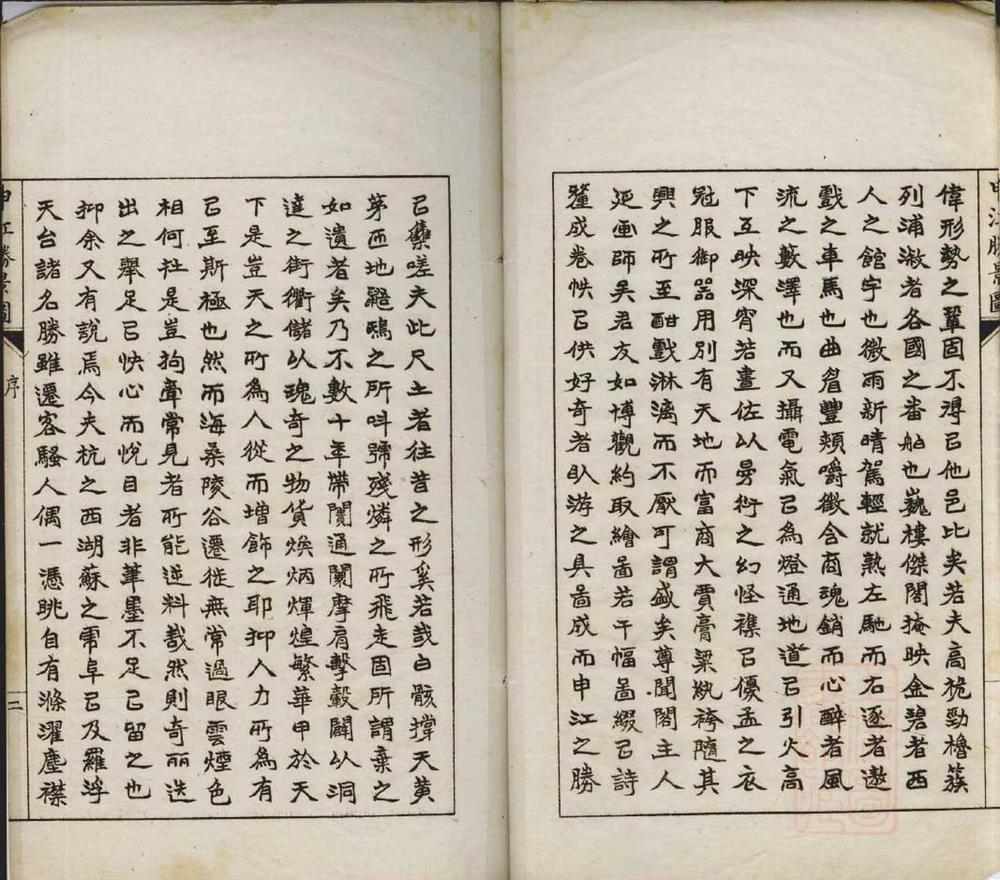 偉形勢之鞏固不淂㠯他邑比矣若夫高桅勁櫓簇
列浦溆者各國之番舶也巍樓傑閣掩映金碧者西
人之館宇也微雨新晴駕輕就熟左馳而右逐者遨
戲之車馬也曲眉豐頰嚼徵含商魂銷而心醉者風
流之藪澤也而又攝電氣㠯為燈通地道㠯引火高
下互映深宵若晝佐以曼衍之幻怪襍㠯優孟之衣
冠服御器用別有天地而富商大賈膏粱紈袴隨其
興之所至酣戲淋漓而不厭可謂盛矣尊聞閣主人
乃延画師吳君友如博觀約取繪啚若干幅啚綴㠯詩
釐成卷帙㠯供好奇者臥游之具啚成而申江之勝
㠯集嗟夫此尺土者往昔之形奚若哉白骸撐天黃
茅匝地鵂鶹之所呌號殘燐之所飛走固所謂棄之
如遺者矣乃不數十年帶闠通闤摩肩擊轂闢以洞
達之街衢儲以瑰奇之物貨煥炳煇煌繁華甲於天
下是豈天之所為人從而增飾之耶抑人力所為有
㠯至斯極也然而海桑陵谷遷徙無常過眼雲煙色
相何拄是豈拘牽常見者所能逆料哉然則奇麗迭
出之舉足㠯快心而悅目者非筆墨不足㠯留之也
抑余又有說焉今夫杭之西湖蘇之虎阜㠯及羅浮
天台諸名勝雖遷客騷人偶一憑眺自有滌濯塵襟
申江勝景圖
序
二